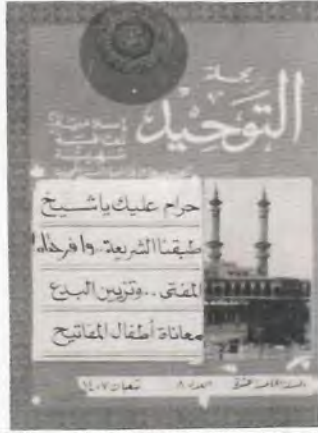 مجلة
التوحيد
إسلامية
ثقافية
شهرية
حرام عليك ياشيخ
طبقنا الشريعة..وافرحتاه!
المفتى..وتزيين البدع
معاناة أطفال المفاتيح
السنة الخامسة عشرة العدد ٨ شعبان ١٤٠٧